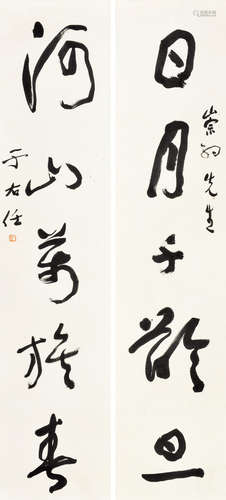 日月千齡旦
崇羽先生
河山萬族春
于右任